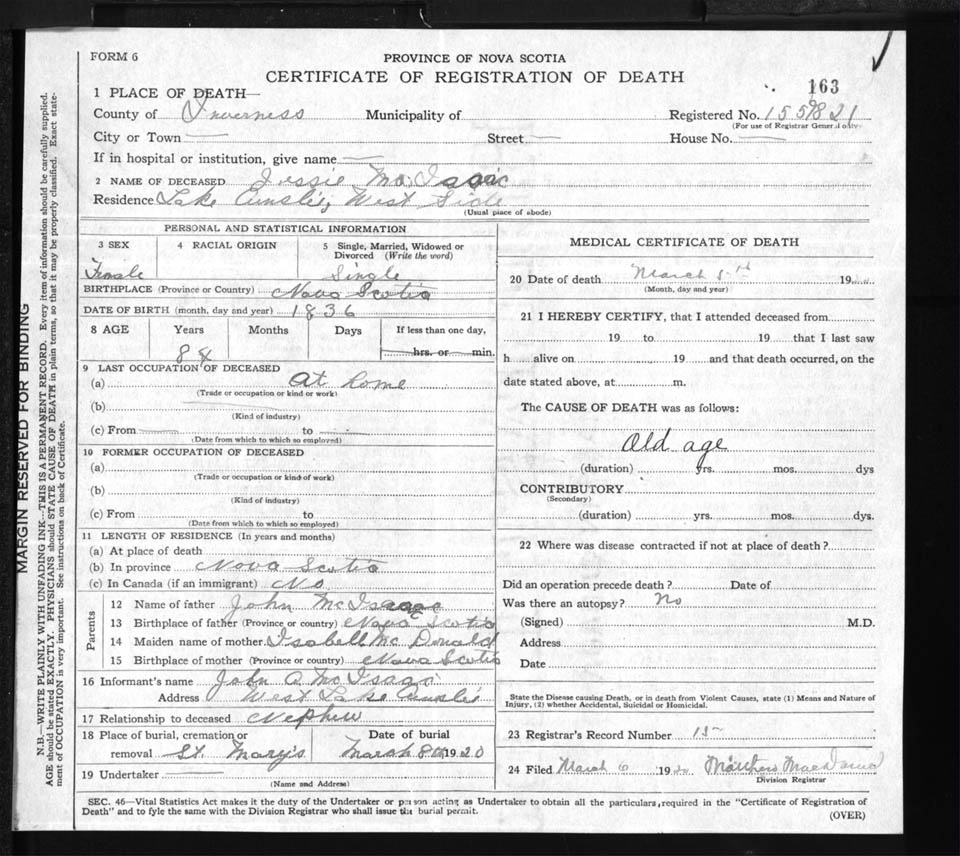 FORM 6
PROVINCE OF NOVA SCOTIA
CERTIFICATE OF REGISTRATION OF DEATH
163
1 PLACE OF DEATH—
County of Inverness Municipality of Registered No. 155821
(For use of Registrar General only)
City or Town Street House No.
If in hospital or institution, give name
2 NAME OF DECEASED Jessie McIsaac
Residence Lake Ainslie, West Side
(Usual place of abode)
PERSONAL AND STATISTICAL INFORMATION
3 SEX 4 RACIAL ORIGIN 5 Single, Married, Widowed or Divorced (Write the word)
Female Single
BIRTHPLACE (Province or Country) Nova Scotia
DATE OF BIRTH (month, day and year) 1836
8 AGE Years Months Days If less than one day,
84 hrs. or min.
9 LAST OCCUPATION OF DECEASED
(a) At home
(Trade or occupation or kind or work)
(b)
(Kind of industry)
(c) From to
(Date from which to which so employed)
10 FORMER OCCUPATION OF DECEASED
(a)
(Trade or occupation or kind of work)
(b)
(Kind of industry)
(c) From to
(Date from which to which so employed)
11 LENGTH OF RESIDENCE (In years and months)
(a) At place of death
(b) In province Nova Scotia
(c) In Canada (if an immigrant) No
Parents
12 Name of father John McIsaac
13 Birthplace of father (Province or country) Nova Scotia
14 Maiden name of mother Isabell McDonald
15 Birthplace of mother (Province or country) Nova Scotia
16 Informant's name John A. McIsaac
Address West Lake Ainslie
17 Relationship to deceased Nephew
18 Place of burial, cremation or Date of burial
removal St. Mary's March 8th 1920
19 Undertaker
(Name and Address)
MEDICAL CERTIFICATE OF DEATH
20 Date of death March 5th 19
(Month, day and year)
21 I HEREBY CERTIFY, that I attended deceased from
19 to 19 that I last saw
h alive on 19 and that death occurred, on the
date stated above, at m.
The CAUSE OF DEATH was as follows:
Old age
(duration) yrs. mos. dys
CONTRIBUTORY
(Secondary)
(duration) yrs. mos. dys.
22 Where was disease contracted if not at place of death?
Did an operation precede death? Date of
Was there an autopsy? No
(Signed) M.D.
Address
Date
State the Disease causing Death, or in death from Violent Causes, state (1) Means and Nature of
Injury, (2) whether Accidental, Suicidal or Homicidal.
23 Registrar's Record Number
24 Filed March 6 1920 Matthew MacDonald
Division Registrar
SEC. 46—Vital Statistics Act makes it the duty of the Undertaker or person acting as Undertaker to obtain all the particulars, required in the "Certificate of Registration of
Death" and to fyle the same with the Division Registrar who shall issue the burial permit.
(OVER)
MARGIN RESERVED FOR BINDING
N.B.—WRITE PLAINLY WITH UNFADING INK—THIS IS A PERMANENT RECORD. Every item of information should be carefully supplied.
AGE should be stated EXACTLY. PHYSICIANS should STATE CAUSE OF DEATH in plain terms, so that it may be properly classified. Exact state-
ment of OCCUPATION is very important. See instructions on back of Certificate.